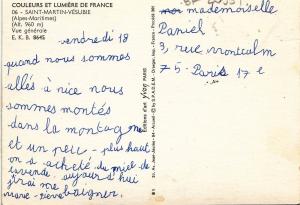 COULEURS ET LUMIÈRE DE FRANCE
06 - SAINT-MARTIN-VÉSUBIE
(Alpes-Maritimes)
(Alt. 960 m)
Vue générale
E. K. B. 8645
vendredi 18
quand nous sommes
allés à nice nous
sommes montés
dans la montagne
et un peu plus haut
on a acheté du miel de
lavende aujourd'hui
j'irai me baigner.
marie-pierre
Editions d'art yvon PARIS
mademoiselle
Daniel
3, rue montcalm
75 - Paris 17 e